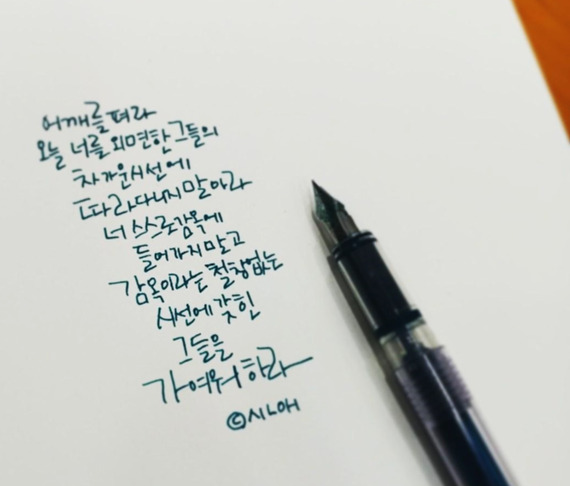 어깨를 펴라
오늘 너를 외면한 그들의
차가운 시선에
따라다니지 말아라
너 스스로 감옥에
들어가지 말고
감옥이라는 철창없는
시선에 갖힌
그들을
가여워 하라
©시나애